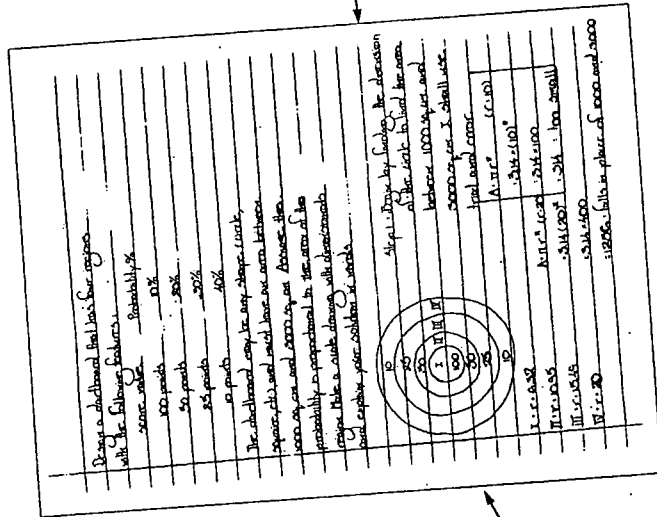 Design a dartboard that has four regions
with the following features.
score value Probability %
100 points 10%
50 points 20%
25 points 30%
10 points 40%
The dartboard may be any shape (circle,
square, etc) and must have an area between
1000 sq. cm and 3000 sq. cm Assume the
probability is proportional to the area of the
region Make a scale drawing with dimensions
and explain your solution in words
10
25
50
I II III IV
100
50
25
10
I: r=6.32
II: r=10.95
III: r=15.49
IV: r=20
Step 1: Draw by finding the dimension
of the circle to find the area
between 1000 sq. cm and
3000 sq. cm I shall use
trial and error
A=πr² (r=10)
=3.14×(10)²
=3.14×100
=314 too small
A=πr² (r=20)
=3.14(20)²
=3.14×400
=1256 falls in place of 1000 and 3000